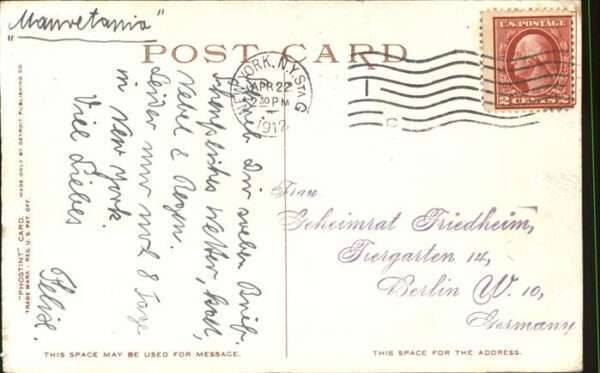 "Mauretania"
POST CARD
NEW YORK, N.Y. STA G
APR 22
2 30 PM
1912
U.S. POSTAGE
2 CENTS 2
Schrieb Dir soeben Brief.
scheussliches Wetter,
Nebel & Regen.
Leider nur noch 8 Tage
in New York.
Viel Liebes
Felix.
Frau
Geheimrat Friedheim,
Tiergarten 14,
Berlin W. 10,
Germany
"PHOSTINT" CARD. MADE ONLY BY DETROIT PUBLISHING CO.
TRADE MARK REG. U.S. PAT. OFF.
THIS SPACE MAY BE USED FOR MESSAGE.
THIS SPACE FOR THE ADDRESS.